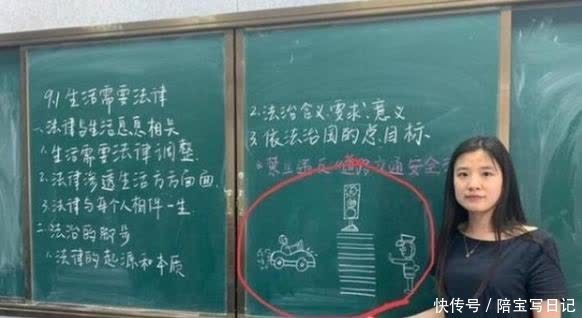 9.1 生活需要法律
一、法律与生活息息相关
1. 生活需要法律调整
2. 法律渗透生活方方面面
3. 法律与每个人相伴一生
二、法治的脚步
1. 法律的起源和本质
2. 法治含义、要求、意义
3. 依法治国的总目标
交通安全
快传号/陪宝写日记